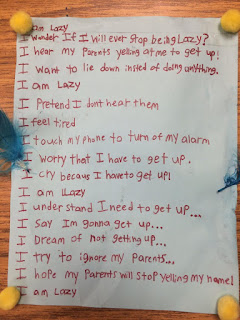 I am Lazy
I wonder If I will ever stop being Lazy?
I hear my Parents yelling at me to get up!
I want to lie down insted of doing anything.
I am Lazy
I Pretend I dont hear them
I feel tired
I touch my phone to turn of my alarm
I worry that I have to get up.
I cry becaus I have to get up!
I am lLazy
I understand I need to get up...
I say Im gonna get up...
I Dream of not getting up...
I try to ignore my Parents...
I hope my Parents will stop yelling my name!
I am Lazy